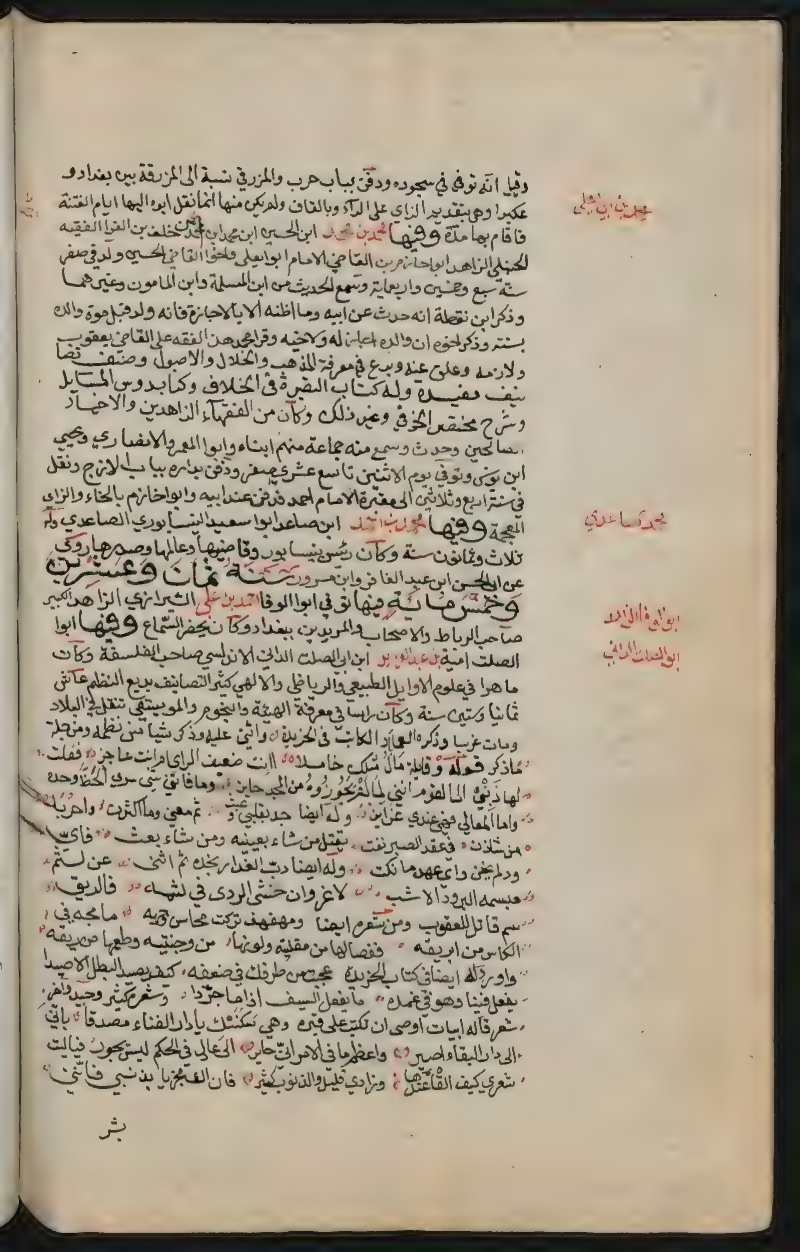 وقيل انه توفي في سجوده ودفن بباب حرب والمزرفي نسبة الى المزرقة بين بغداد و
عكبرا وهي بتقديم الزاي على الرآء وبالقاف ولم يكن منها انما نقل ابوه اليها ايام الفتنة
فاقام بها مدة وفيها محمد بن محمد ابن الحسين ابن محمد ابن خلف بن الفرا الفقيه
الحنبلي الزاهد ابوا خازم بن القاضي الامام ابوا يعلى واخوا القاضي الحسين ولد في صفر
سنة سبع وخمسين واربعماية وسمع الحديث من ابن المسلمة وابن المامون وغيرهما
وذكر ابن نقطة انه حدث عن ابيه وما اظنه الا بالاجازة فانه ولد قبل موت والده
بسنة وذكر اخوه ان والده اجاز له ولاخيه وقرا هذا الفقه على القاضي يعقوب
ولازمه وعلق عنه وبرع في معرفة المذهب والخلاف والاصول وصنف تصا
نيف مفيدة وله كتاب التبصرة في الخلاف وكتاب روس المسايل
وشرح مختصر الخرقي وغير ذلك وكان من الفقهاء الزاهدين والاخيار
الصالحين وحدث وسمع منه جماعة منهم ابناه وابوا المعمر الانصاري ويحيى
ابن بوش وتوفي يوم الاثنين تاسع عشري صفر ودفن بداره بباب الازج ونقل
في سنة اربع وثلاثين الى مقبرة الامام احمد فدفن عند ابيه وابوا خازم بالخاء والزاي
المعجمة وفيها محمد بن احمد ابن صاعد ابوا سعيد النيسابوري الصاعدي وله
ثلاث وثمانون سنة وكان رئيس نيسابور وقاضيها وعالمها وصدرها روى
عن ابي الحسن ابن عبد الغافر وابن مسرور سنة ثمان وعشرين
وخمس ماية فيها توفي ابوا الوفا احمد بن علي الشيرازي الزاهد الكبير
صاحب الرباط والاصحاب والمريدين ببغداد وكان يحضر السماع وفيها ابوا
الصلت امية بن عبد العزيز ابن ابي الصلت الداني الاندلسي صاحب الفلسفة وكان
ماهرا في علوم الاوايل الطبيعي والرياضي والالهي كثير التصانيف بديع النظم عاش
ثمانيا وستين سنة وكان راسا في معرفة الهيئة والنجوم والموسيقى تنقل في البلاد
ومات غريبا وذكره العماد الكاتب في الخريدة واثنى عليه وذكر شيا من نظمه ومن جملة
ما ذكر قوله وقائلة ما بال مثلك خاملا اانت ضعيف الراي ام انت عاجز فقلت
لها ذنبي الى القوم انني لما لم يحوزوه من المجد حايز وما فاتني شي سوى الحظ وحده
واما المعالي فهي عندي غرايز وله ايضا جد بقلبي وعبث ثم مضى وما اكترث واحربا
من شادن في عقد الصبر نفث يقتل من شاء بعينيه ومن شاء بعث فاي
ود لم يخن واي عهد ما نكث وله ايضا دب العذار بخده ثم انثنى عن لثم
مبسمه البرود الاشنب لا غرو ان خشى الردى في لثمه فالريق
سم قاتل للعقرب ومن شعره ايضا ومهفهف تركت محاسن وجهه ما مجه في
الكاس من ابريقه ففعالها من مقلتيه ولونها من وجنتيه وطعمها من ريقه
واورد له ايضا في كتاب الخريدة عجبت من طرفك في ضعفه كيف يصيد البطل الاصيدا
يفعل فينا وهو في غمده ما يفعل السيف اذا ما جردا وشعره كثير وجيد واخر
شعر قاله ابيات اوصى ان تكتب على قبره وهي سكنتك يا دار الفناء مصدقا باني
الى دار البقاء اصير واعظم ما في الامر اني صاير الى عادل في الحكم ليس يجور فيا ليت
شعري كيف القاه عندها وزادي قليل والذنوب كثير فان اك مجزيا بذنبي فانني
بشر
محمد بن ابي يعلى
محمد صاعدي
ابو الوفا الزاهد
ابو الصلت الداني